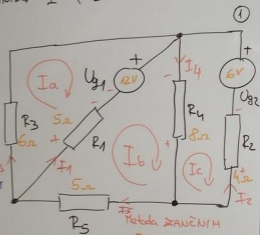 1
+
Ia
Ug1
12V
+
-
I4
-
6V
Ug2
5Ω
R3
6Ω
+
R1
I1
Ib
R4
8Ω
+
Ic
R2
4Ω
I2
5Ω
R5
I5
Metoda ZANČNIM